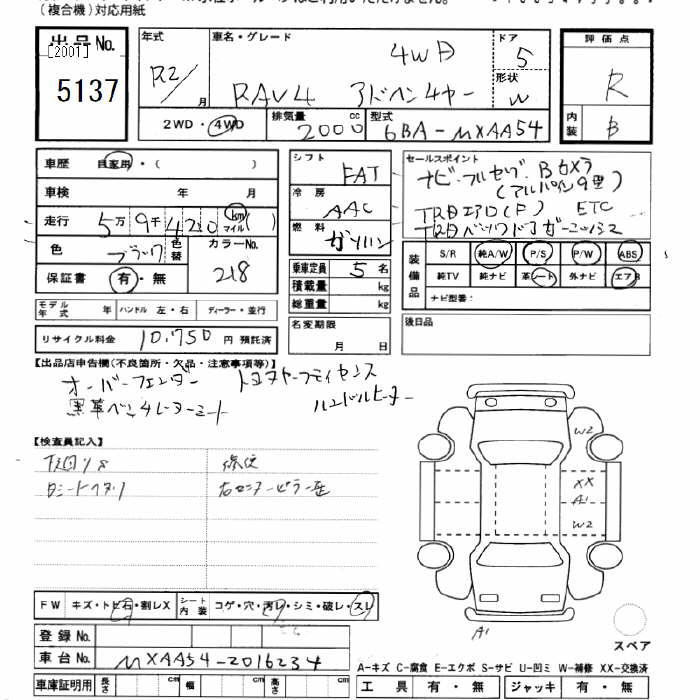 (複合機)対応用紙
出品No. [200T] 5137
年式 R2 / 月
車名・グレード RAV4 アドベンチャー 4WD
ドア 5
形状 W
2WD・4WD 排気量 2000 cc 型式 6BA-MXAA54
評価点 R
内装 B
車歴 自家用・( )
車検 年 月
走行 5万 9千 420 km マイル( )
色 ブラック 色替 カラーNo. 218
保証書 有・無
モデル年式 ハンドル 左・右 ディーラー・並行
リサイクル料金 10,750 円 預託済
シフト FAT
冷房 AAC
燃料 ガソリン
乗車定員 5 名
積載量 kg
総重量 kg
名変期限 月 日
セールスポイント
ナビ・フルセグ・Bカメラ
(アルパイン9型)
TRDエアロ(F) ETC
装備品 S/R 純A/W P/S P/W ABS
純TV 純ナビ 革シート 外ナビ エアB
ナビ型番:
後日品
【出品店申告欄(不良箇所・欠品・注意事項等)】
オーバーフェンダー トヨタセーフティセンス
黒革ベンチレーターシート ハンドルヒーター
【検査員記入】
下回りサ 修復
右センターピラー
W2
XX
A1
W2
A1
スペア
FW キズ・トビ石・割レX シート内装 コゲ・穴・汚レ・シミ・破レ・スレ
登録No.
車台No. MXAA54-2016234
車庫証明用 長さ cm 幅 cm 高さ cm
A-キズ C-腐食 E-エクボ S-サビ U-凹ミ W-補修 XX-交換済
工具 有・無 ジャッキ 有・無